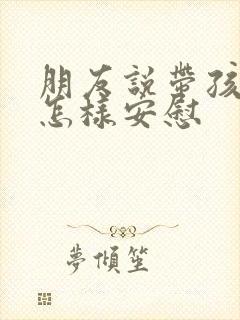 朋友說帶孩
怎樣安慰
夢傾笙